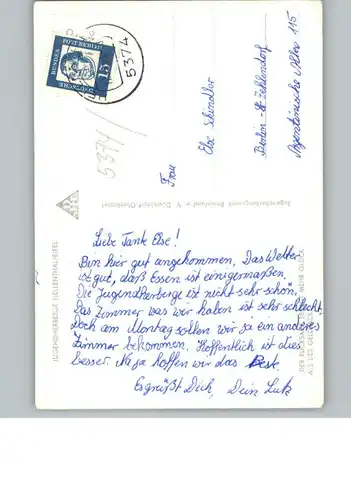 Liebe Tante Else!
Bin hier gut angekommen. Das Wetter
ist gut, daß Essen ist einigermaßen.
Die Jugendherberge ist nicht sehr schön.
Das Zimmer was wir haben ist sehr schlecht.
Doch am Montag sollen wir ja ein anderes
Zimmer bekommen. Hoffentlich ist dies
besser. Na ja hoffen wir das Beste.
Es grüßt Dich, Dein Lutz
Frau
Else Schindler
Berlin-Zehlendorf
Argentinische Allee 115
5374
5374
DEUTSCHE
BUNDES
15
JUGENDHERBERGE HELLENTHAL/EIFEL
Jugendherbergswerk Rheinland e. V. Düsseldorf-Oberkassel
MEHR GLÜCK